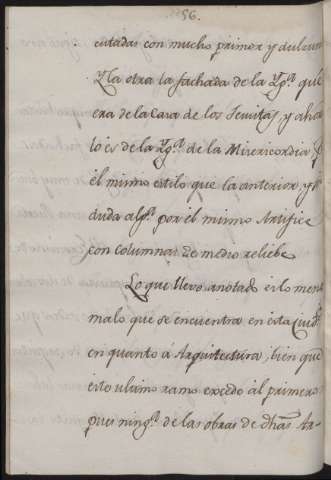 56.
cutadas con mucho primor y dulzura
Y la otra la fachada de la Ygª. que
era de la Casa de los Jesuitas, y ahora
lo es de la Ygª. de la Misericordia
el mismo estilo que la anterior, y
duda algª. por el mismo Artifice
con columnas de medio reliebe
Lo que llevo anotado es lo menos
malo que se encuentra en esta Ciudᵈ.
en quanto á Arquitectura, bien que
este ultimo ramo excede al primero
pues ningª. de las obras de dhas Ar-